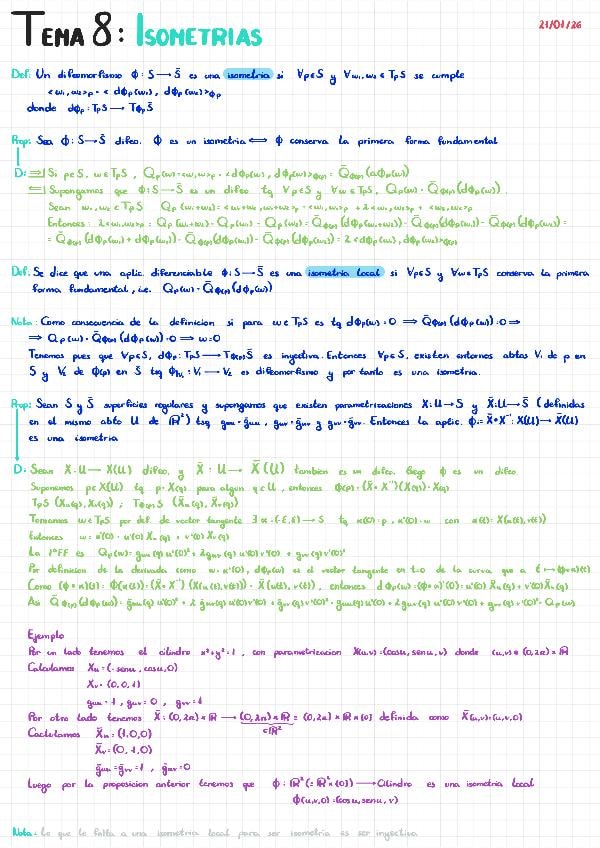 TEMA 8: ISOMETRIAS
21/01/26
Def: Un difeomorfismo ϕ: S → S̄ es una isometria si ∀p∈S y ∀w₁,w₂ ∈ TpS se cumple
<w₁,w₂>p = < dϕp(w₁), dϕp(w₂)>ϕp
donde dϕp: TpS → Tϕp S̄
Prop: Sea ϕ: S → S̄ difeo. ϕ es un isometria ⟺ ϕ conserva la primera forma fundamental
D: ⟹| Si p∈S, w∈TpS, Qp(w)=<w,w>p = <dϕp(w), dϕp(w)>ϕ(p) = Q̄ϕ(p)(dϕp(w))
⟸| Supongamos que ϕ: S → S̄ es un difeo tq ∀p∈S y ∀w∈TpS, Qp(w) = Q̄ϕ(p)(dϕp(w)).
Sean w₁,w₂ ∈ TpS Qp(w₁+w₂) = <w₁+w₂,w₁+w₂>p = <w₁,w₁>p + 2<w₁,w₂>p + <w₂,w₂>p
Entonces: 2<w₁,w₂>p = Qp(w₁+w₂) - Qp(w₁) - Qp(w₂) = Q̄ϕ(p)(dϕp(w₁+w₂)) - Q̄ϕ(p)(dϕp(w₁)) - Q̄ϕ(p)(dϕp(w₂)) =
= Q̄ϕ(p)(dϕp(w₁) + dϕp(w₂)) - Q̄ϕ(p)(dϕp(w₁)) - Q̄ϕ(p)(dϕp(w₂)) = 2<dϕp(w₁), dϕp(w₂)>ϕ(p)
Def: Se dice que una aplic. diferenciable ϕ: S → S̄ es una isometria local si ∀p∈S y ∀w∈TpS conserva la primera
forma fundamental, i.e. Qp(w) = Q̄ϕ(p)(dϕp(w))
Nota: Como consecuencia de la definicion si para w∈TpS es tq dϕp(w)=0 ⟹ Q̄ϕ(p)(dϕp(w))=0 ⟹
⟹ Qp(w) = Q̄ϕ(p)(dϕp(w))=0 ⟹ w=0
Tenemos pues que ∀p∈S, dϕp: TpS → Tϕ(p)S̄ es inyectiva. Entonces ∀p∈S, existen entornos abtos V₁ de p en
S y V₂ de ϕ(p) en S̄ tsq ϕ|V₁: V₁ → V₂ es difeomorfismo y por tanto es una isometria.
Prop: Sean S y S̄ superficies regulares y supongamos que existen parametrizaciones X: U → S y X̄: U → S̄ (definidas
en el mismo abto U de ℝ²) tsq guu = ḡuu, guv = ḡuv y gvv = ḡvv. Entonces la aplic. ϕ := X̄∘X⁻¹: X(U) → X̄(U)
es una isometria
D: Sean X: U → X(U) difeo. y X̄: U → X̄(U) tambien es un difeo. luego ϕ es un difeo
Suponemos p∈X(U) tq p=X(q) para algun q∈U, entonces ϕ(p) = (X̄∘X⁻¹)(X(q)) = X̄(q)
TpS (Xu(q), Xv(q)) ; Tϕ(p)S̄ (X̄u(q), X̄v(q))
Tomamos w∈TpS por def. de vector tangente ∃ α:(-ε,ε) → S tq α(0)=p, α'(0)=w con α(t)=X(u(t),v(t))
Entonces w=α'(0)= u'(0)Xu(q) + v'(0)Xv(q)
La 1ªFF es Qp(w)= guu(q)u'(0)² + 2guv(q)u'(0)v'(0) + gvv(q)v'(0)²
Por definicion de la derivada como w=α'(0), dϕp(w) es el vector tangente en t=0 de la curva que a t ↦ (ϕ∘α)(t)
Como (ϕ∘α)(t) = ϕ(α(t)) = (X̄∘X⁻¹)(X(u(t),v(t))) = X̄(u(t),v(t)), entonces dϕp(w)=(ϕ∘α)'(0)= u'(0)X̄u(q) + v'(0)X̄v(q)
Asi Q̄ϕ(p)(dϕp(w)) = ḡuu(q)u'(0)² + 2ḡuv(q)u'(0)v'(0) + ḡvv(q)v'(0)² = guu(q)u'(0)² + 2guv(q)u'(0)v'(0) + gvv(q)v'(0)² = Qp(w)
Ejemplo
Por un lado tenemos el cilindro x²+y²=1, con parametrizacion X(u,v)=(cosu,senu,v) donde (u,v)∈(0,2π)×ℝ
Calculamos Xu=(-senu, cosu,0)
Xv=(0,0,1)
guu=1, guv=0, gvv=1
Por otro lado tenemos X̄: (0,2π)×ℝ → (0,2π)×ℝ ≡ (0,2π)×ℝ×{0} definida como X̄(u,v)=(u,v,0)
⊂ℝ²
Caclulamos X̄u=(1,0,0)
X̄v=(0,1,0)
ḡuu=ḡvv=1, ḡuv=0
Luego por la proposicion anterior tenemos que ϕ: ℝ²(≡ℝ²×{0}) → Cilindro es una isometria local
ϕ(u,v,0)=(cosu,senu,v)
Nota: lo que le falta a una isometria local para ser isometria es ser inyectiva